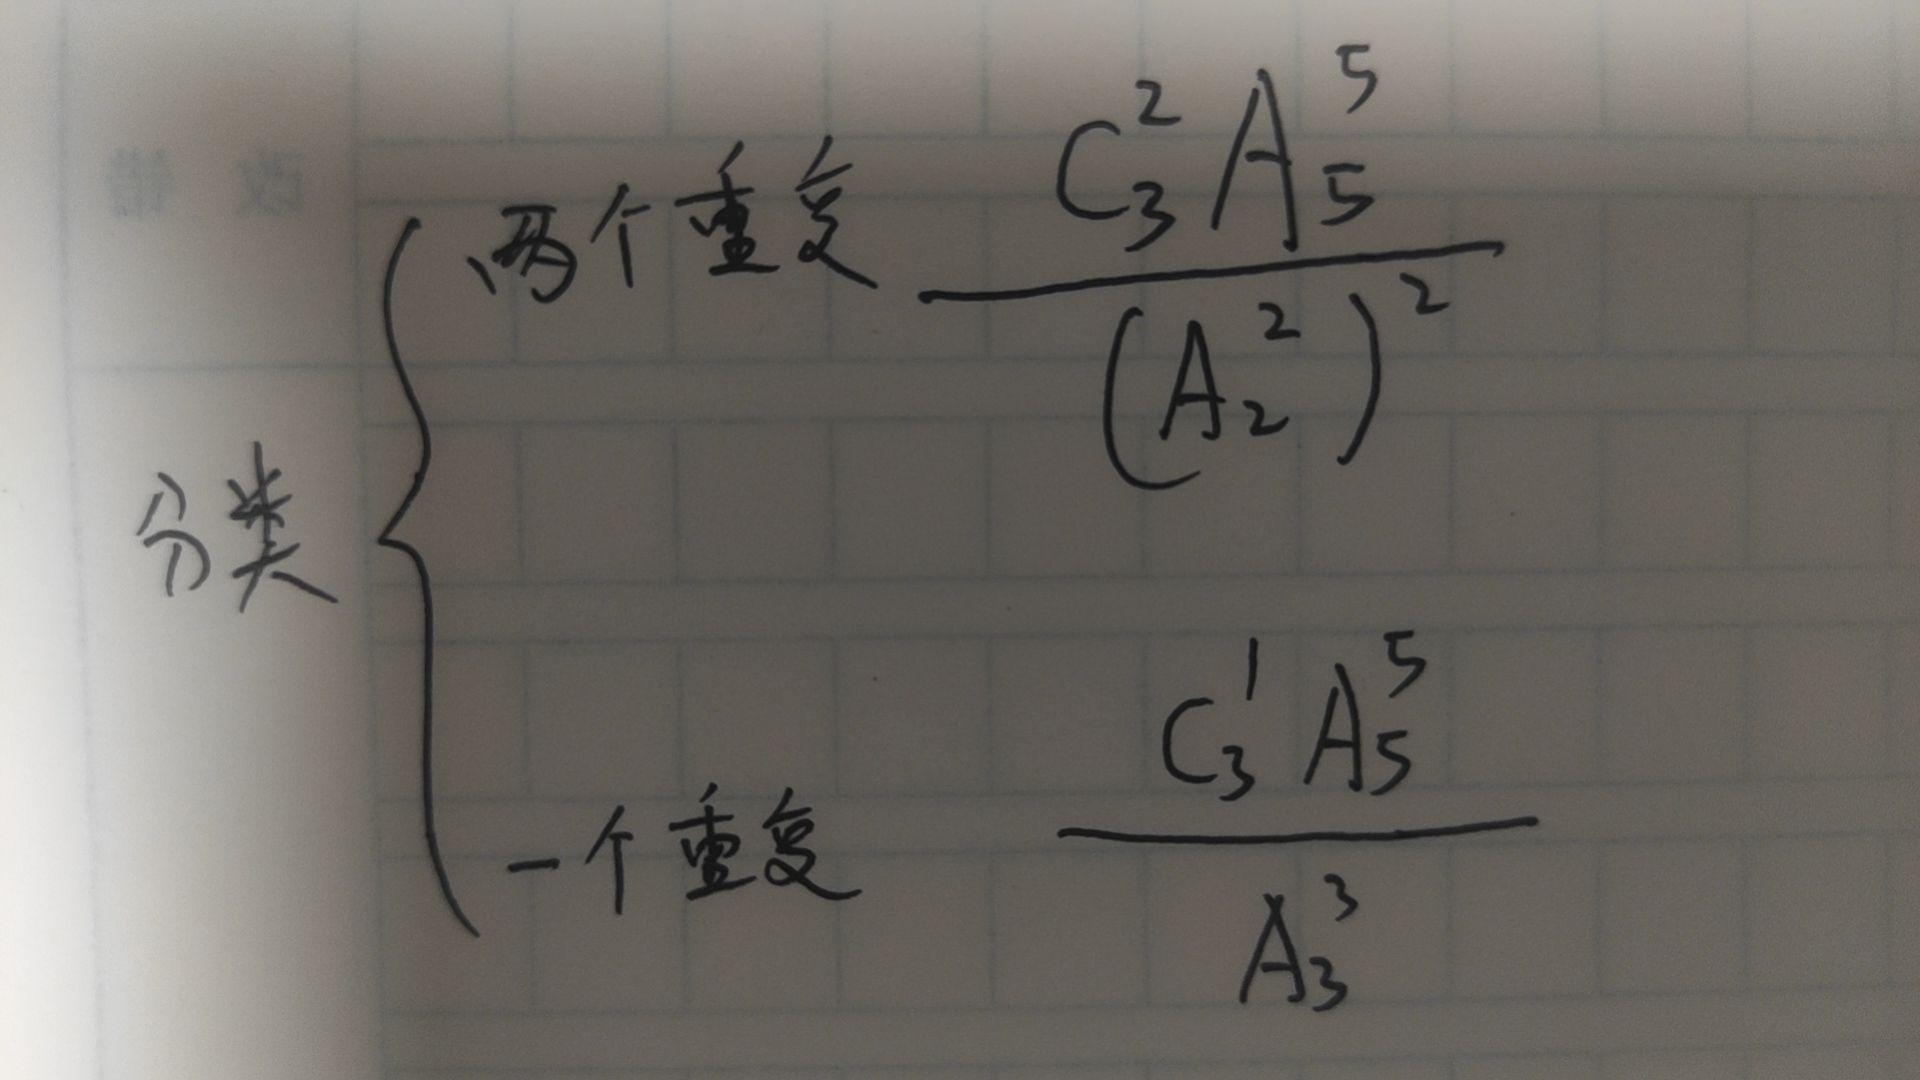 两个重复 C₃² A₅⁵ / (A₂²)²
分类
一个重复 C₃¹ A₅⁵ / A₃³